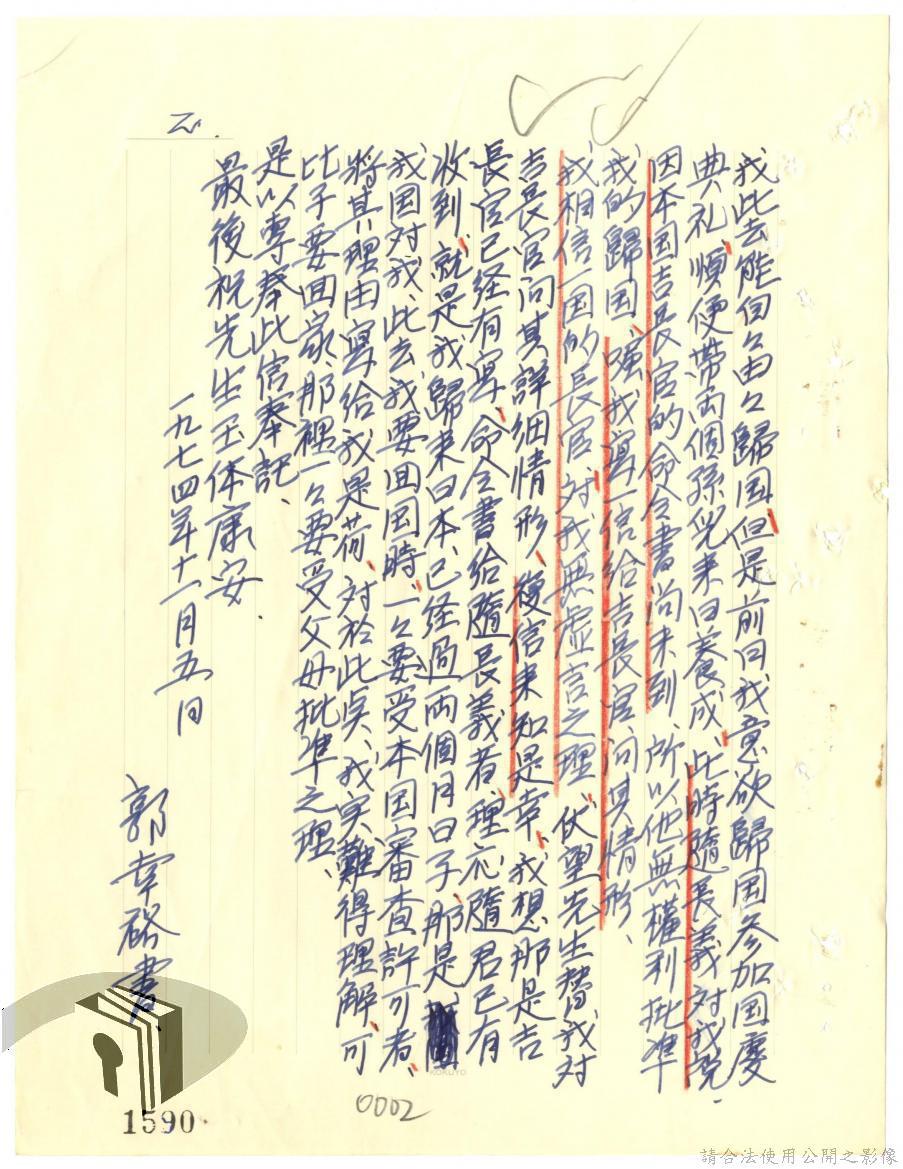 2.
我此去能自自由由歸国但是前回我意欲歸国参加国慶
典礼、順便帶両個孫児来日養成、此時隨長義対我説
因本国吉長官的命令書尚未到、所以他無權利批準
我的歸国、嘱我寫一信給吉長官问其情形、
我相信一国的長官、対我無虚言之理、伏望先生替我対
吉長官问其詳細情形、復信来知是幸、我想那是吉
長官已経有寫、命令書給隨長義者、理応隨君已有
收到、就是我歸来日本、已経過両個月日子、那是
我国対我、此去我要回国時、一々要受本国審查許可者、
將其理由寫給我是荷、対於此点、我実難得理解、可
比子要回家、那裡一々要受父母批準之理、
是以專奉此信奉託、
最後祝先生玉体康安
一九七四年十一月五日
郭幸裕書、
KOKUYO
0002
1590
請合法使用公開之影像